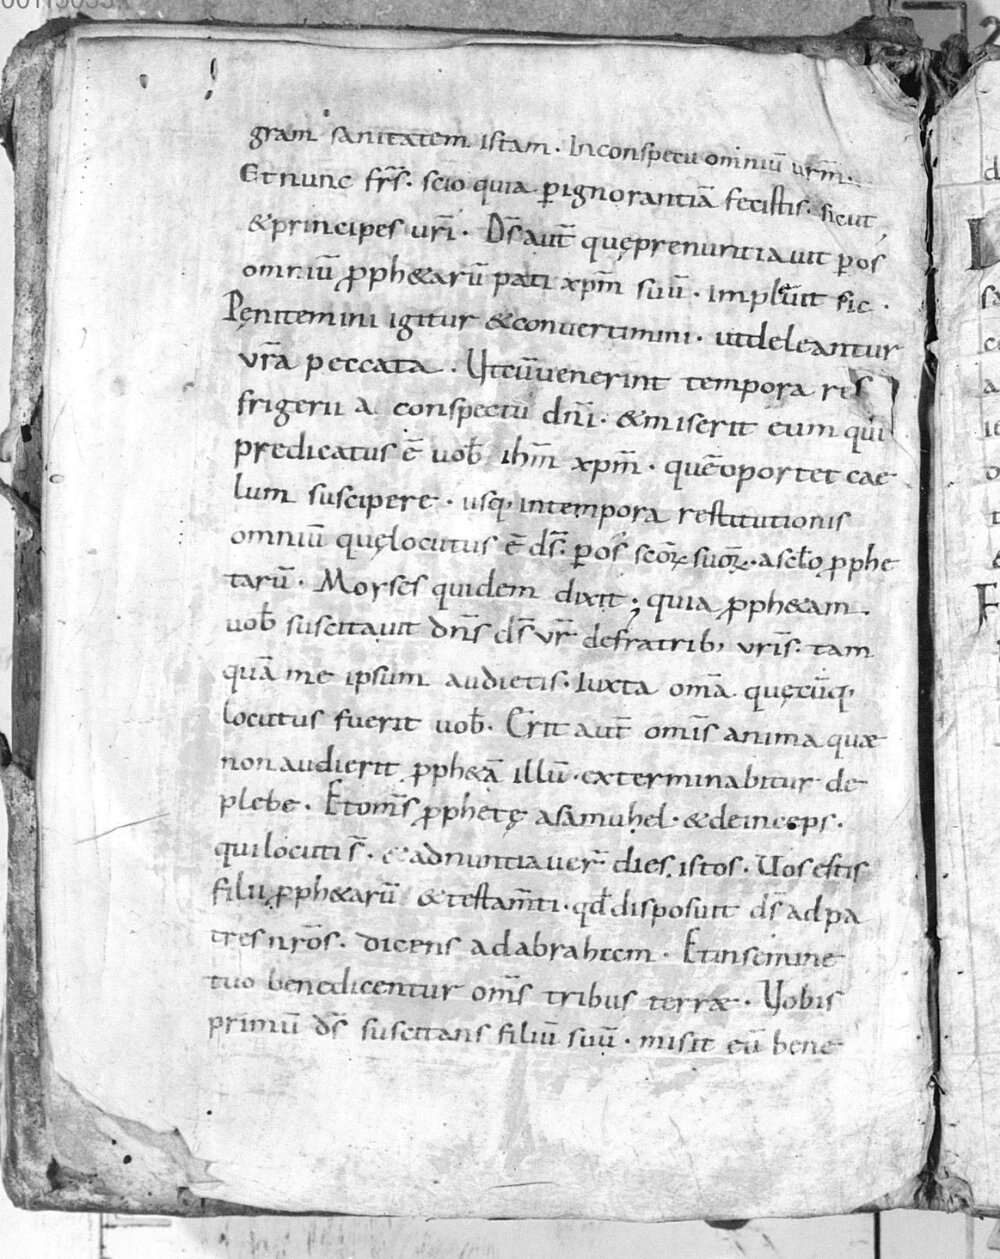 gram sanitatem istam. In conspectu omniū vr̄m.
Et nunc fr̄s. scio quia ꝑ ignorantiā fecistis. sicut
& principes vr̄i. Ds̄ aut̄ quę prenuntiauit ꝑ os
omniū ꝓph&arū pati xp̄m suū. impleuit sic.
Penitemini igitur & conuertimini. ut deleantur
vr̄a peccata. Ut cū uenerint tempora re
frigerii a conspectu dn̄i. & miserit eum qui
predicatus ē uob̄ ihm̄ xp̄m. quē oportet cae
lum suscipere. usq; in tempora restitutionis
omniū quę locutus ē ds̄. ꝑ os sc̄oꝝ suoꝝ. a sc̄lo ꝓphe
tarū. Moyses quidem dixit; quia ꝓph&am.
uob̄ suscitauit dn̄s ds̄ vr̄ de fratrib; vris̄. tam
quā me ipsum audietis. Iuxta om̄a quęcūq;
locutus fuerit uob̄. Erit aut̄ omīs anima quæ
non audierit ꝓph&ā illū. exterminabitur de
plebe. Et om̄s ꝓphetę a samuhel. & deinceps.
qui locuti s̄. & adnuntiauer̄ dies istos. Uos estis
filii ꝓph&arū & testam̄ti. qd̄ disposuit ds̄ ad pa
tres nr̄os. dicens ad abrahem. Et in semine
tuo benedicentur om̄s tribus terræ. Uobis
primū ds̄ suscitans filiū suū. misit eū bene